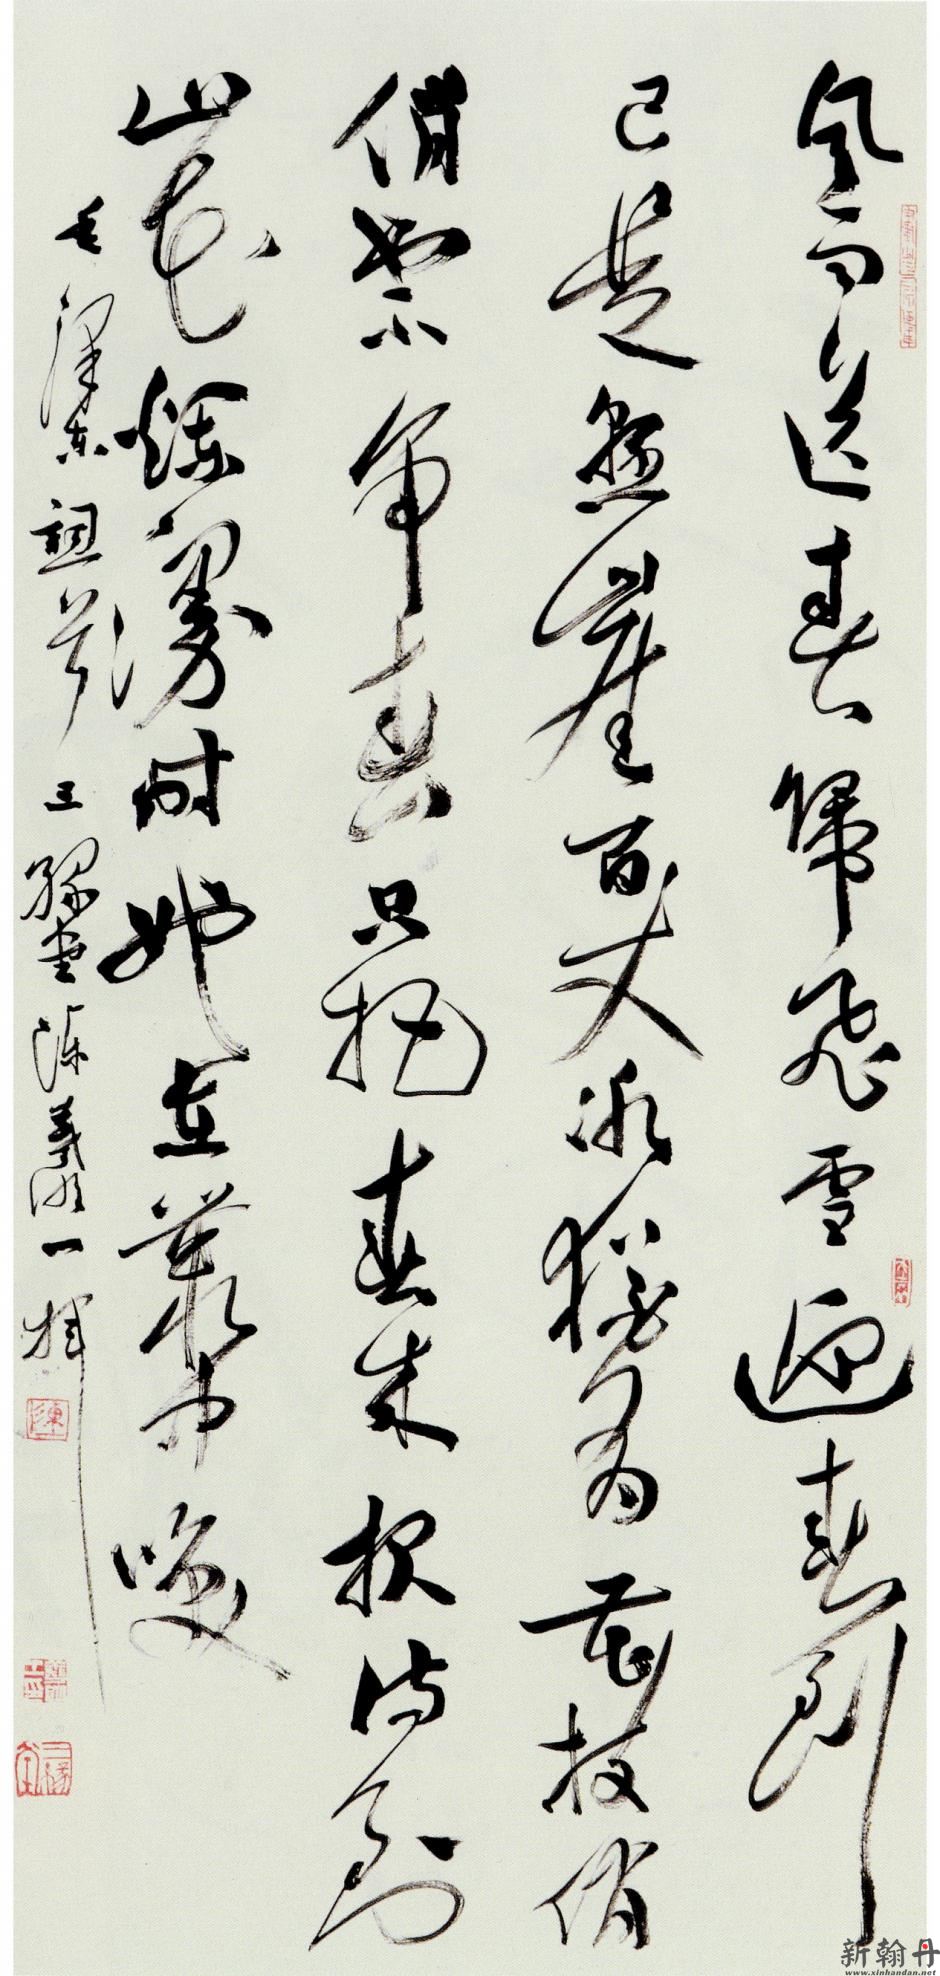 風雨送春歸飛雪迎春到
已是懸崖百丈冰猶有花枝俏
俏也不争春只把春來報待到
山花爛漫時她在叢中笑
毛澤東 三緣堂陳羲明一揮
陳
新翰丹
www.xinhandan.net